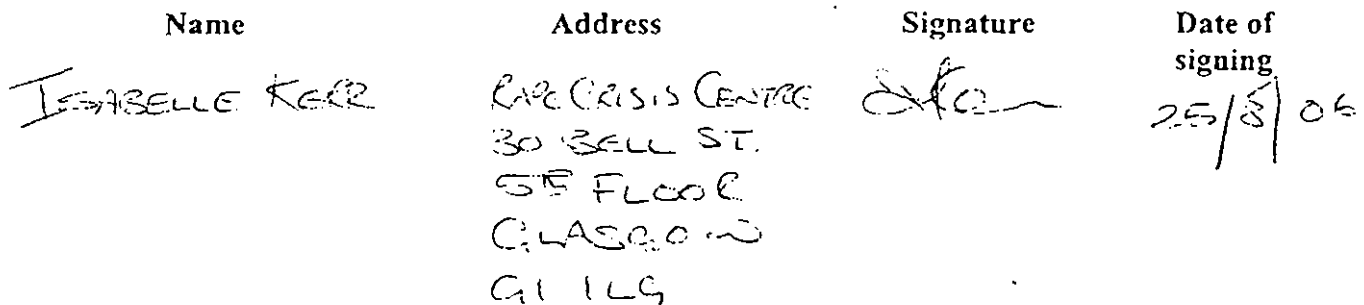 Name Address Signature Date of signing
ISABELLE KERR RAPE CRISIS CENTRE 25/8/06
30 BELL ST.
5TH FLOOR
GLASGOW
G1 1LG